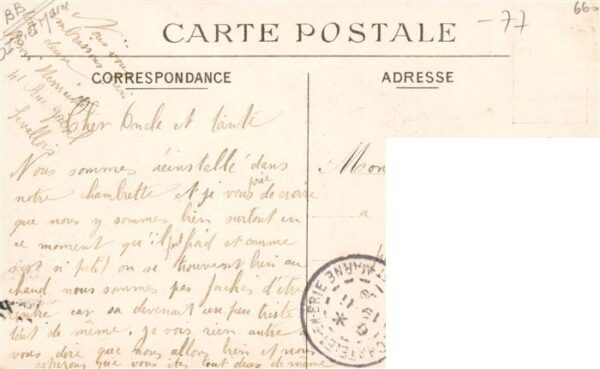 BB
-77
660
CARTE POSTALE
CORRESPONDANCE
ADRESSE
Nous vous
embrassons bien
deux
Henri
41 Rue
Levallois
Cher Oncle et tante
Nous sommes réinstallé dans
notre chambrette et je vous prie de croire
que nous y sommes bien surtout en
ce moment qu'il fait froid et comme
c'est si petit on se trouvent bien au
chaud nous sommes pas fachés d'être
rentré car sa devenait un peu triste
tout de même. je vois rien autre a
vous dire que nous allons bien et nous
espérons que vous êtes tout deux de même
Mon
a
LE CHATELET-EN-BRIE
ET-MARNE